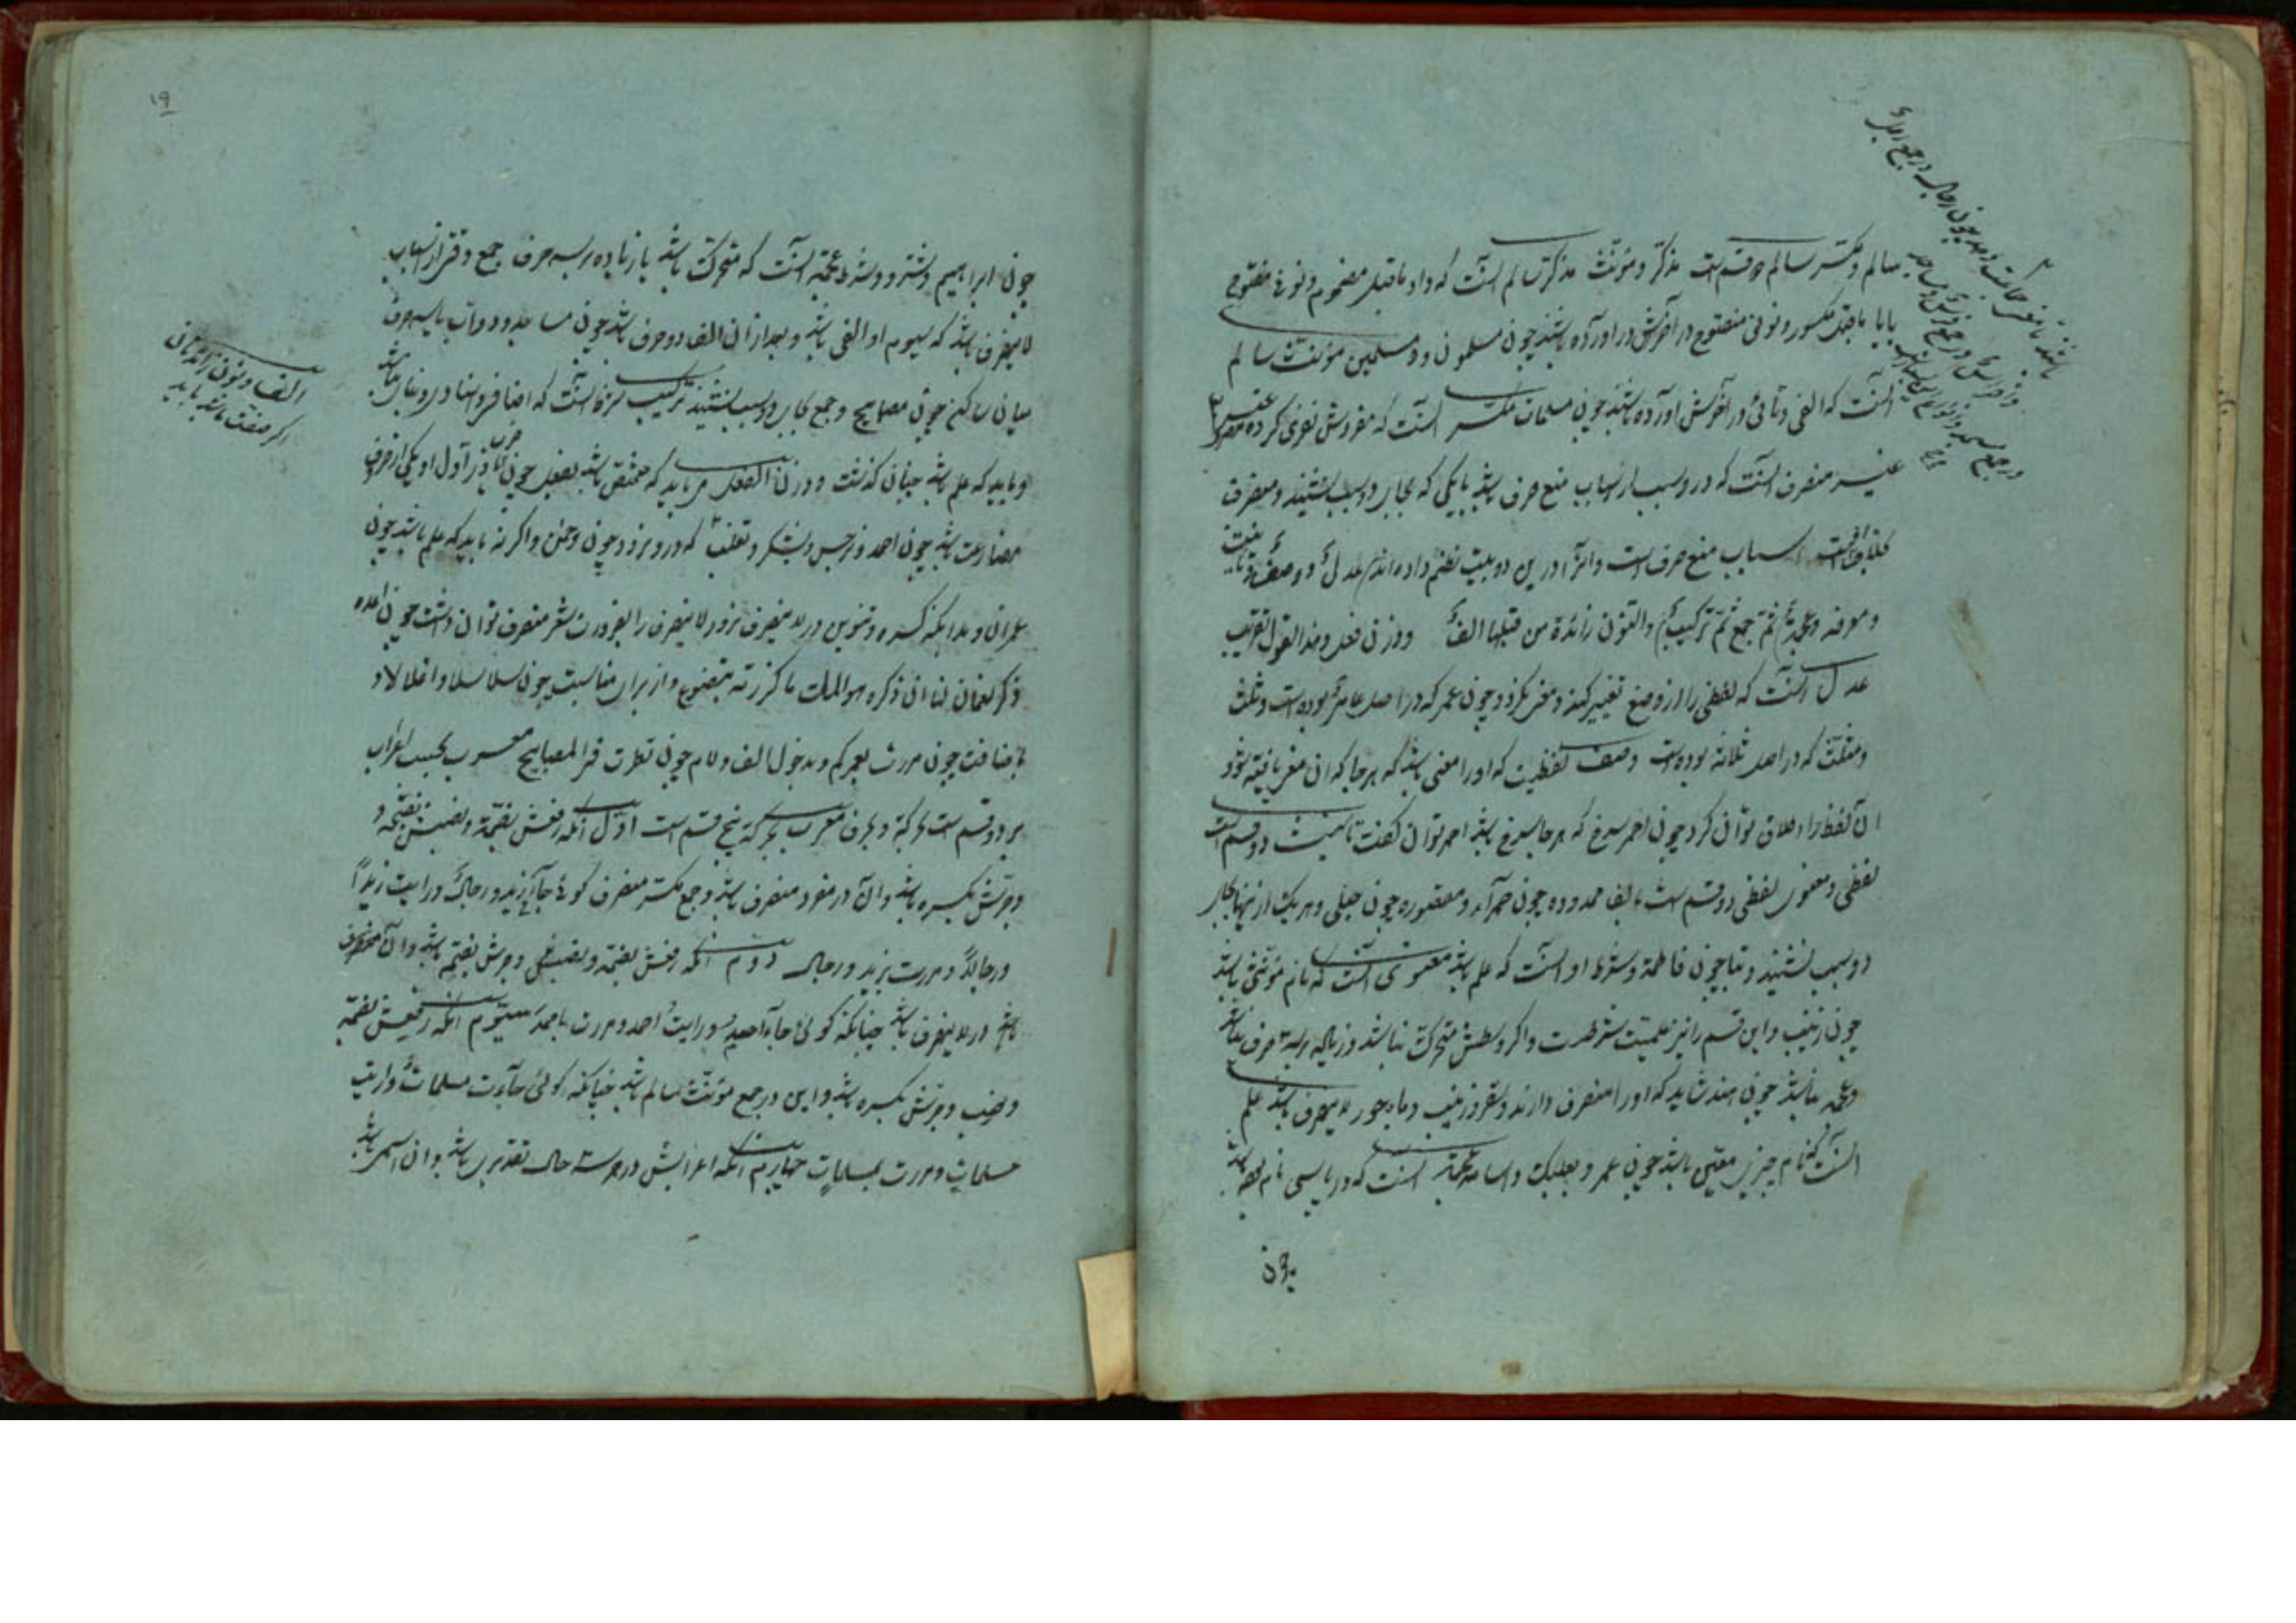 سالم و مکسر سالم دو قسمست مذکر و مؤنث مذکر سالم آنست که واو ماقبل مضموم و نونی مفتوح
یا یا ماقبل مکسور و نونی مفتوح در آخرش در آورده باشند چون مسلمون و مسلمین مؤنث سالم
آنست که الفی و تائی در آخرش آورده باشند چون مسلمات مکسر آنست که مفردش تغییر کرده
غیر منصرف آنست که درو دو سبب از اسباب منع صرف باشد یا یکی که بجای دو سبب نشیند و منصرف
بخلاف آنست اسباب منع صرف است و آنرا درین دو بیت نظم داده‌اند عدل و وصف و تأنیث
و معرفة و عجمة ثم جمع ثم ترکیب و النون زائدة من قبلها الف و وزن فعل و هذا القول تقریب
عدل آنست که لفظی را از وضع تغییر کنند و معنی نگردد چون عمر که در اصل عامر بوده است و ثلث
و مثلث که در اصل ثلاثة بوده است وصف لفظیست که او را معنی باشد که هر جا که آن معنی یافته شود
آن لفظ را اطلاق توان کرد چون احمر سرخ که هر جا سرخ باشد احمر توان گفت تأنیث دو قسم است
لفظی و معنوی لفظی دو قسم است بالف ممدوده چون حمرآء و مقصوره چون حبلی و هر یک ازینها بجای
دو سبب نشیند و بتا چون فاطمة و شرط او آنست که علم باشد معنوی آنست که نام مؤنثی باشد
چون زینب و این قسم را نیز علمیت شرطست و اگر وسطش متحرک نباشد و زیاده بر سه حرف نباشد
و عجمه نباشد چون هند شاید که او را منصرف دارند و سقر و زینب و ماه و جور لاینصرف باشد علم
آنست که نام چیزی معین باشد چون عمر و بعلبک و اسامة عجمه آنست که در پارسی نام بوده باشد
چون
۱۹
چون ابراهیم و شتر و شرط عجمه آنست که متحرک باشد یا زیاده بر سه حرف جمع وقتی از اسباب
لاینصرف باشد که سیوم او الفی باشد و بعد از آن الف دو حرف باشد چون مساجد و دواب یا سه حرف
میان ساکن چون مصابیح و جمع بجای دو سبب نشیند ترکیب شرط آنست که اضافة و اسناد درو نباشد
و باید که علم باشد چنان که گذشت و وزن الفعل می باید که مختص باشد بفعل چون ضرب یا در اول او یکی از حروف
مضارعت باشد چون احمد و نرجس و یشکر و تغلب
عمران و بدانکه کسره و تنوین در لاینصرف نرود لاینصرف را بضرورت شعر منصرف توان داشت چون اعد
ذکر نعمان لنا ان ذکره هو المسک ما کررته یتضوع و از برای مناسبت چون سلاسلا و اغلالا و
باضافت چون مررت بعمرکم و بدخول الف و لام چون نظرت فی المصابیح معرب بحسب اعراب
بر دو قسم است بحرکة و بحرف معرب بحرکة پنج قسم است اول آنکه رفعش بضمة و نصبش بفتحة و
و جرش بکسره باشد و آن در مفرد منصرف باشد و جمع مکسر منصرف گوئی جآء زید و رجال و رأیت زیدا
و رجالا و مررت بزید و رجال دوم آنکه رفعش بضمة و نصبش و جرش بفتحه باشد و آن
باشد در لاینصرف باشد چنانکه گوئی جآء احمد و رأیت احمد و مررت باحمد سیوم آنکه رفعش بضمة
و نصب و جرش بکسره باشد و این در جمع مؤنث سالم باشد چنانکه گوئی جآءت مسلمات و رأیت
مسلمات و مررت بمسلمات چهارم آنکه اعرابش در هر سه حال تقدیری باشد و آن اسمی باشد
الف و نون زائدتان
اگر صفت باشد باید